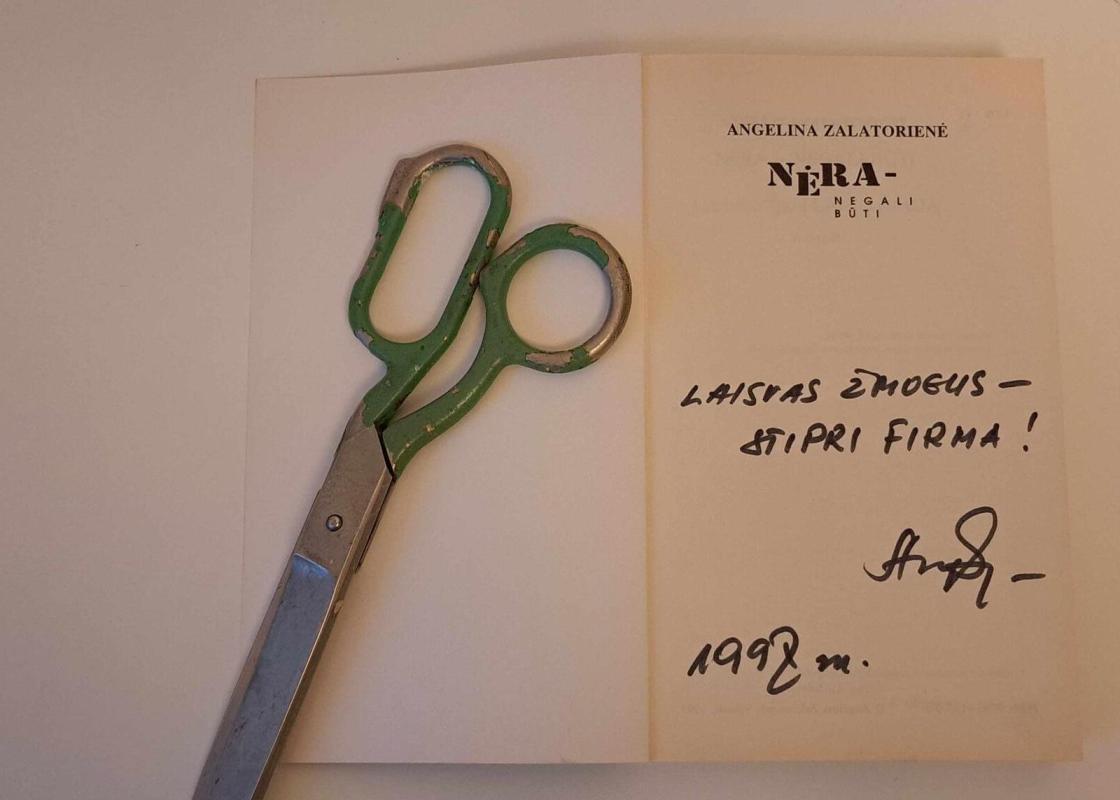 ANGELINA ZALATORIENĖ
NĖRA-
NEGALI
BŪTI
LAISVAS ŽMOGUS –
STIPRI FIRMA!
1998 m.